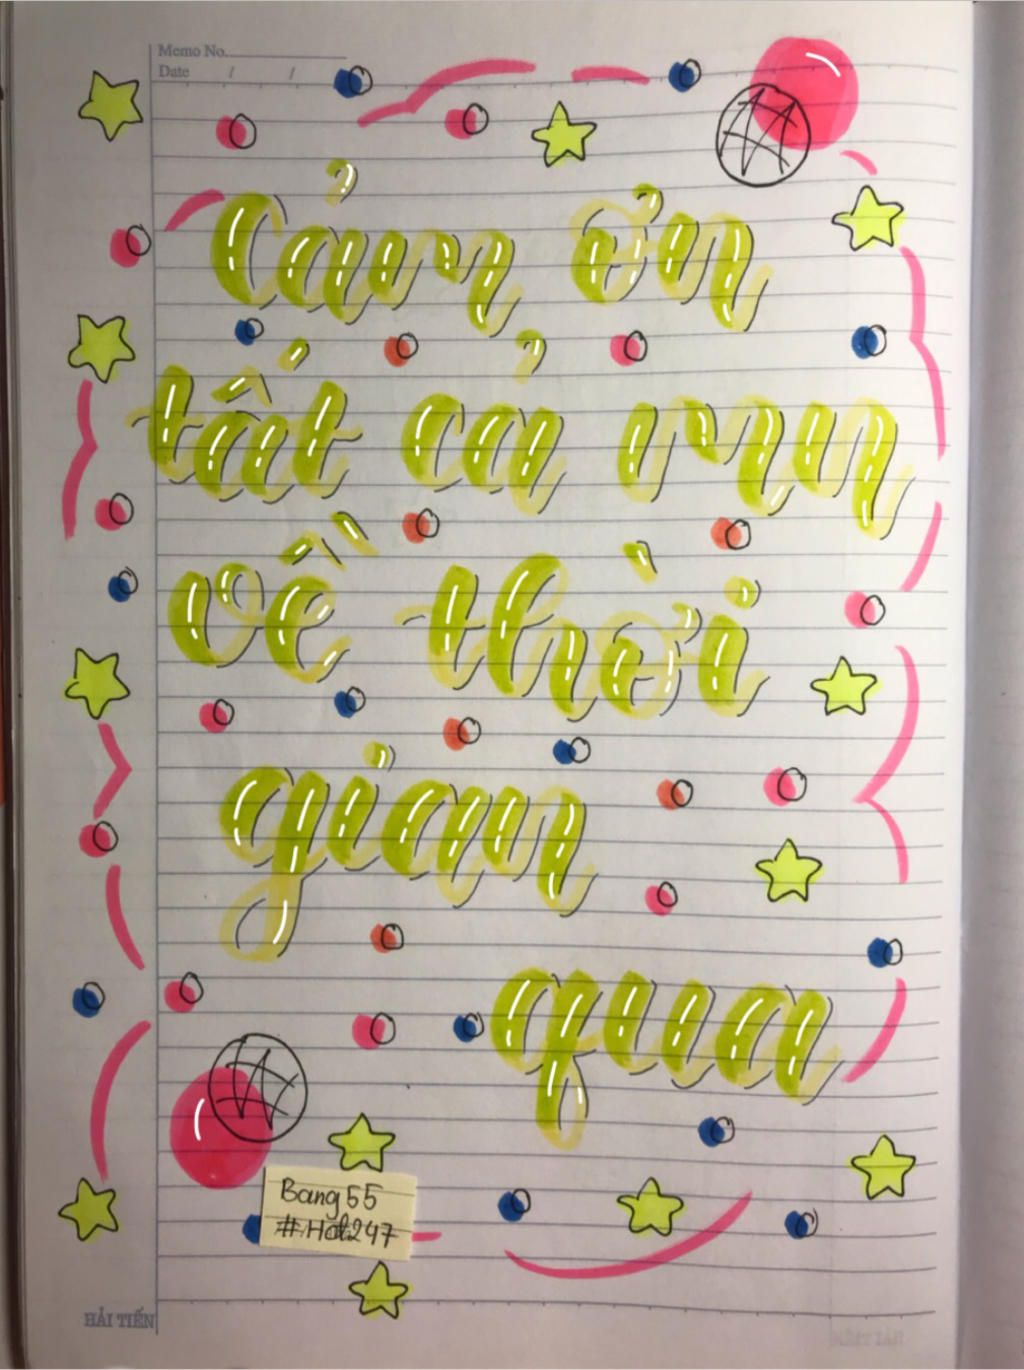 Memo No.
Date / /
Cảm ơn
tất cả mn
về thời
gian
qua
Bang55
HẢI TIẾN